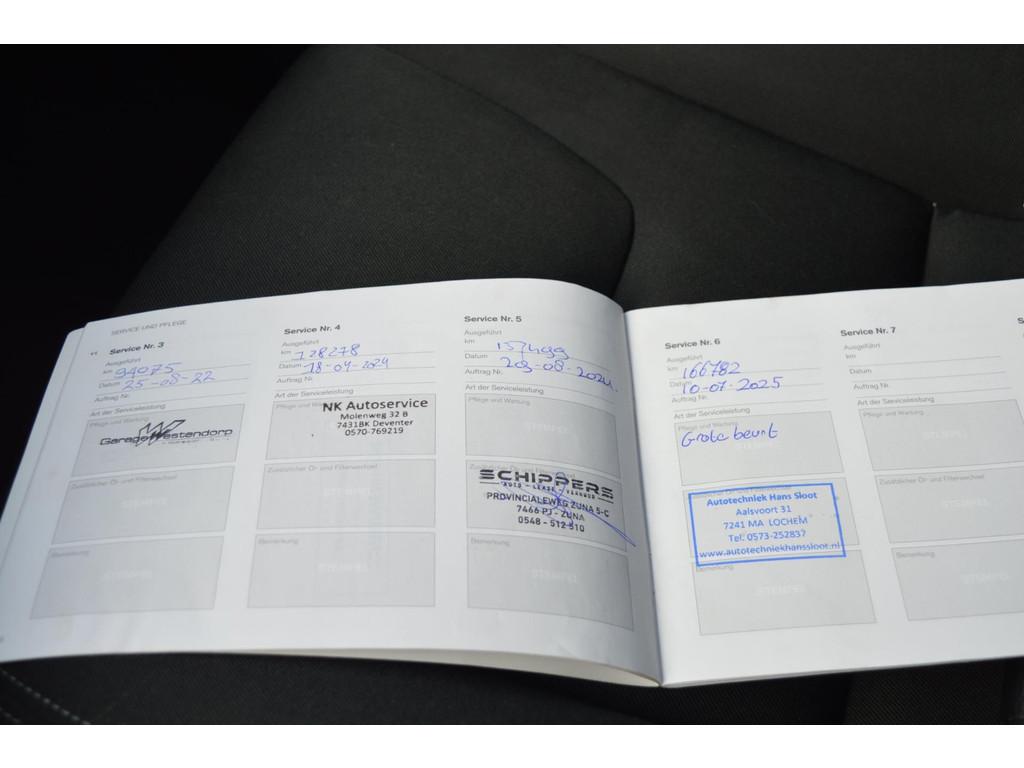 SERVICE UND PFLEGE
Service Nr. 3
Ausgeführt
km 94075
Datum 25-08-22
Auftrag Nr.
Art der Serviceleistung
Pflege und Wartung
Garage Westendorp
Zusätzlicher Öl- und Filterwechsel
STEMPEL
Bemerkung
STEMPEL
Service Nr. 4
Ausgeführt
km 128278
Datum 18-04-2024
Auftrag Nr.
Art der Serviceleistung
Pflege und Wartung
NK Autoservice
Molenweg 32 B
7431BK Deventer
0570-769219
Zusätzlicher Öl- und Filterwechsel
STEMPEL
Bemerkung
STEMPEL
Service Nr. 5
Ausgeführt
km
Datum
Auftrag Nr.
Art der Serviceleistung
Pflege und Wartung
STEMPEL
Zusätzlicher Öl- und Filterwechsel
SCHIPPERS
AUTO - LEASE - VERHUUR
PROVINCIALEWEG ZUNA 5-C
7466 PJ - ZUNA
0548 - 512 510
Bemerkung
STEMPEL
Service Nr. 6
Ausgeführt
km 166782
Datum 10-07-2025
Auftrag Nr.
Art der Serviceleistung
Pflege und Wartung
Grote beurt
Autotechniek Hans Sloot
Aalsvoort 31
7241 MA LOCHEM
Tel. 0573-252837
www.autotechniekhanssloot.nl
Bemerkung
STEMPEL
Service Nr. 7
Ausgeführt
km
Datum
Auftrag Nr.
Art der Serviceleistung
Pflege und Wartung
STEMPEL
Zusätzlicher Öl- und Filterwechsel
STEMPEL
Bemerkung
STEMPEL